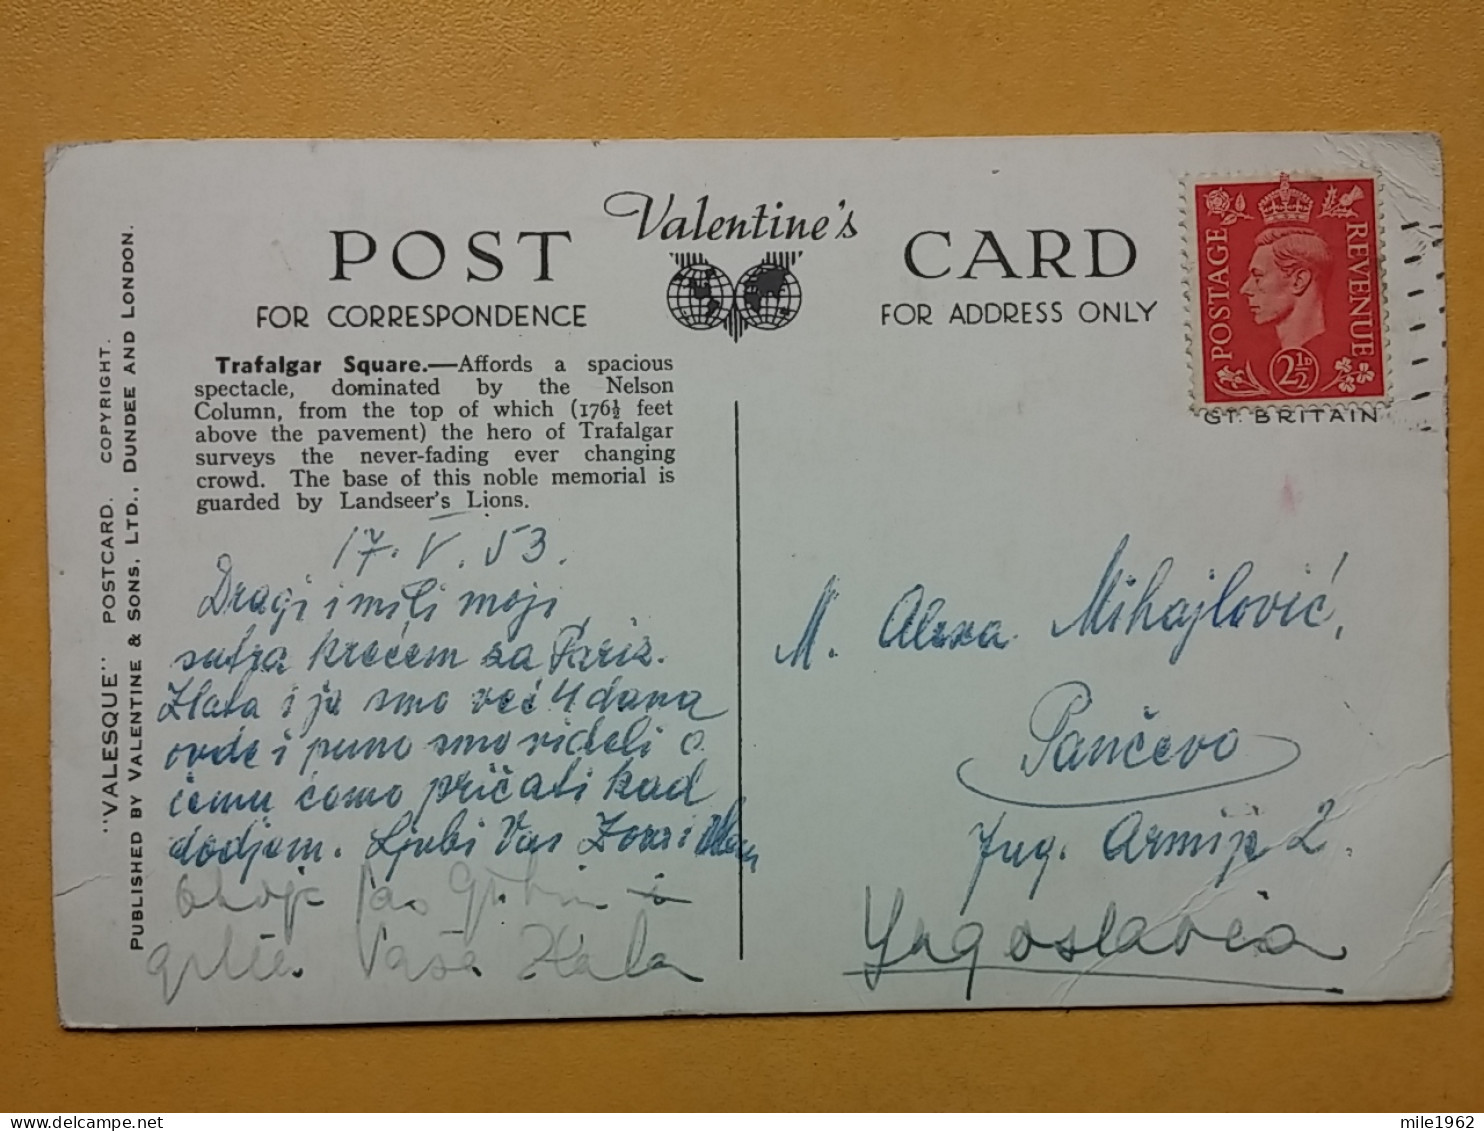 "VALESQUE" POSTCARD. COPYRIGHT.
PUBLISHED BY VALENTINE & SONS, LTD., DUNDEE AND LONDON.
POST
Valentine's
CARD
FOR CORRESPONDENCE
FOR ADDRESS ONLY
Trafalgar Square.—Affords a spacious
spectacle, dominated by the Nelson
Column, from the top of which (176½ feet
above the pavement) the hero of Trafalgar
surveys the never-fading ever changing
crowd. The base of this noble memorial is
guarded by Landseer's Lions.
17. V. 53.
Dragi i mili moji
sutra krećem za Pariz.
Zlata i ja smo već 4 dana
ovde i puno smo videli o
čemu ćemo pričati kad
dodjem. Ljubi Vas
Vaša Zlata
POSTAGE
REVENUE
2½D
GT. BRITAIN
M. Alexa Mihajlović,
Pančevo
Jug. Armije 2.
Yugoslavia
mile1962